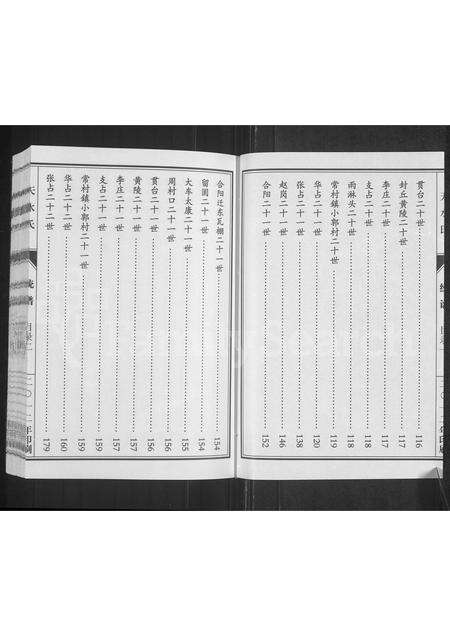 贯台二十世……116
封丘黄陵二十世……117
李庄二十世……117
支占二十世……118
雨淋头二十世……118
常村鎮小郭村二十世……119
华占二十世……120
张占二十世……138
赵岗二十世……146
合阳二十世……152
合阳迁东瓦棚二十一世……154
留固二十一世……154
大车太康二十一世……155
周村口二十一世……156
贯台二十一世……156
黄陵二十一世……157
李庄二十一世……157
支占二十一世……159
常村鎮小郭村二十一世……159
华占二十二世……160
张占二十二世……179
氏
统谱
目录二
二〇一二年印刷
FamilySearch